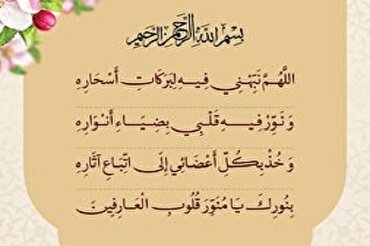 بِسْمِ اللَّهِ الرَّحْمَنِ الرَّحِيمِ
اللَّهُمَّ نَبِّهْنِي فِيهِ لِبَرَكَاتِ أَسْحَارِهِ
وَ نَوِّرْ فِيهِ قَلْبِي بِضِيَاءِ أَنْوَارِهِ
وَ خُذْ بِكُلِّ أَعْضَائِي إِلَى اتِّبَاعِ آثَارِهِ
بِنُورِكَ يَا مُنَوِّرَ قُلُوبِ الْعَارِفِينَ